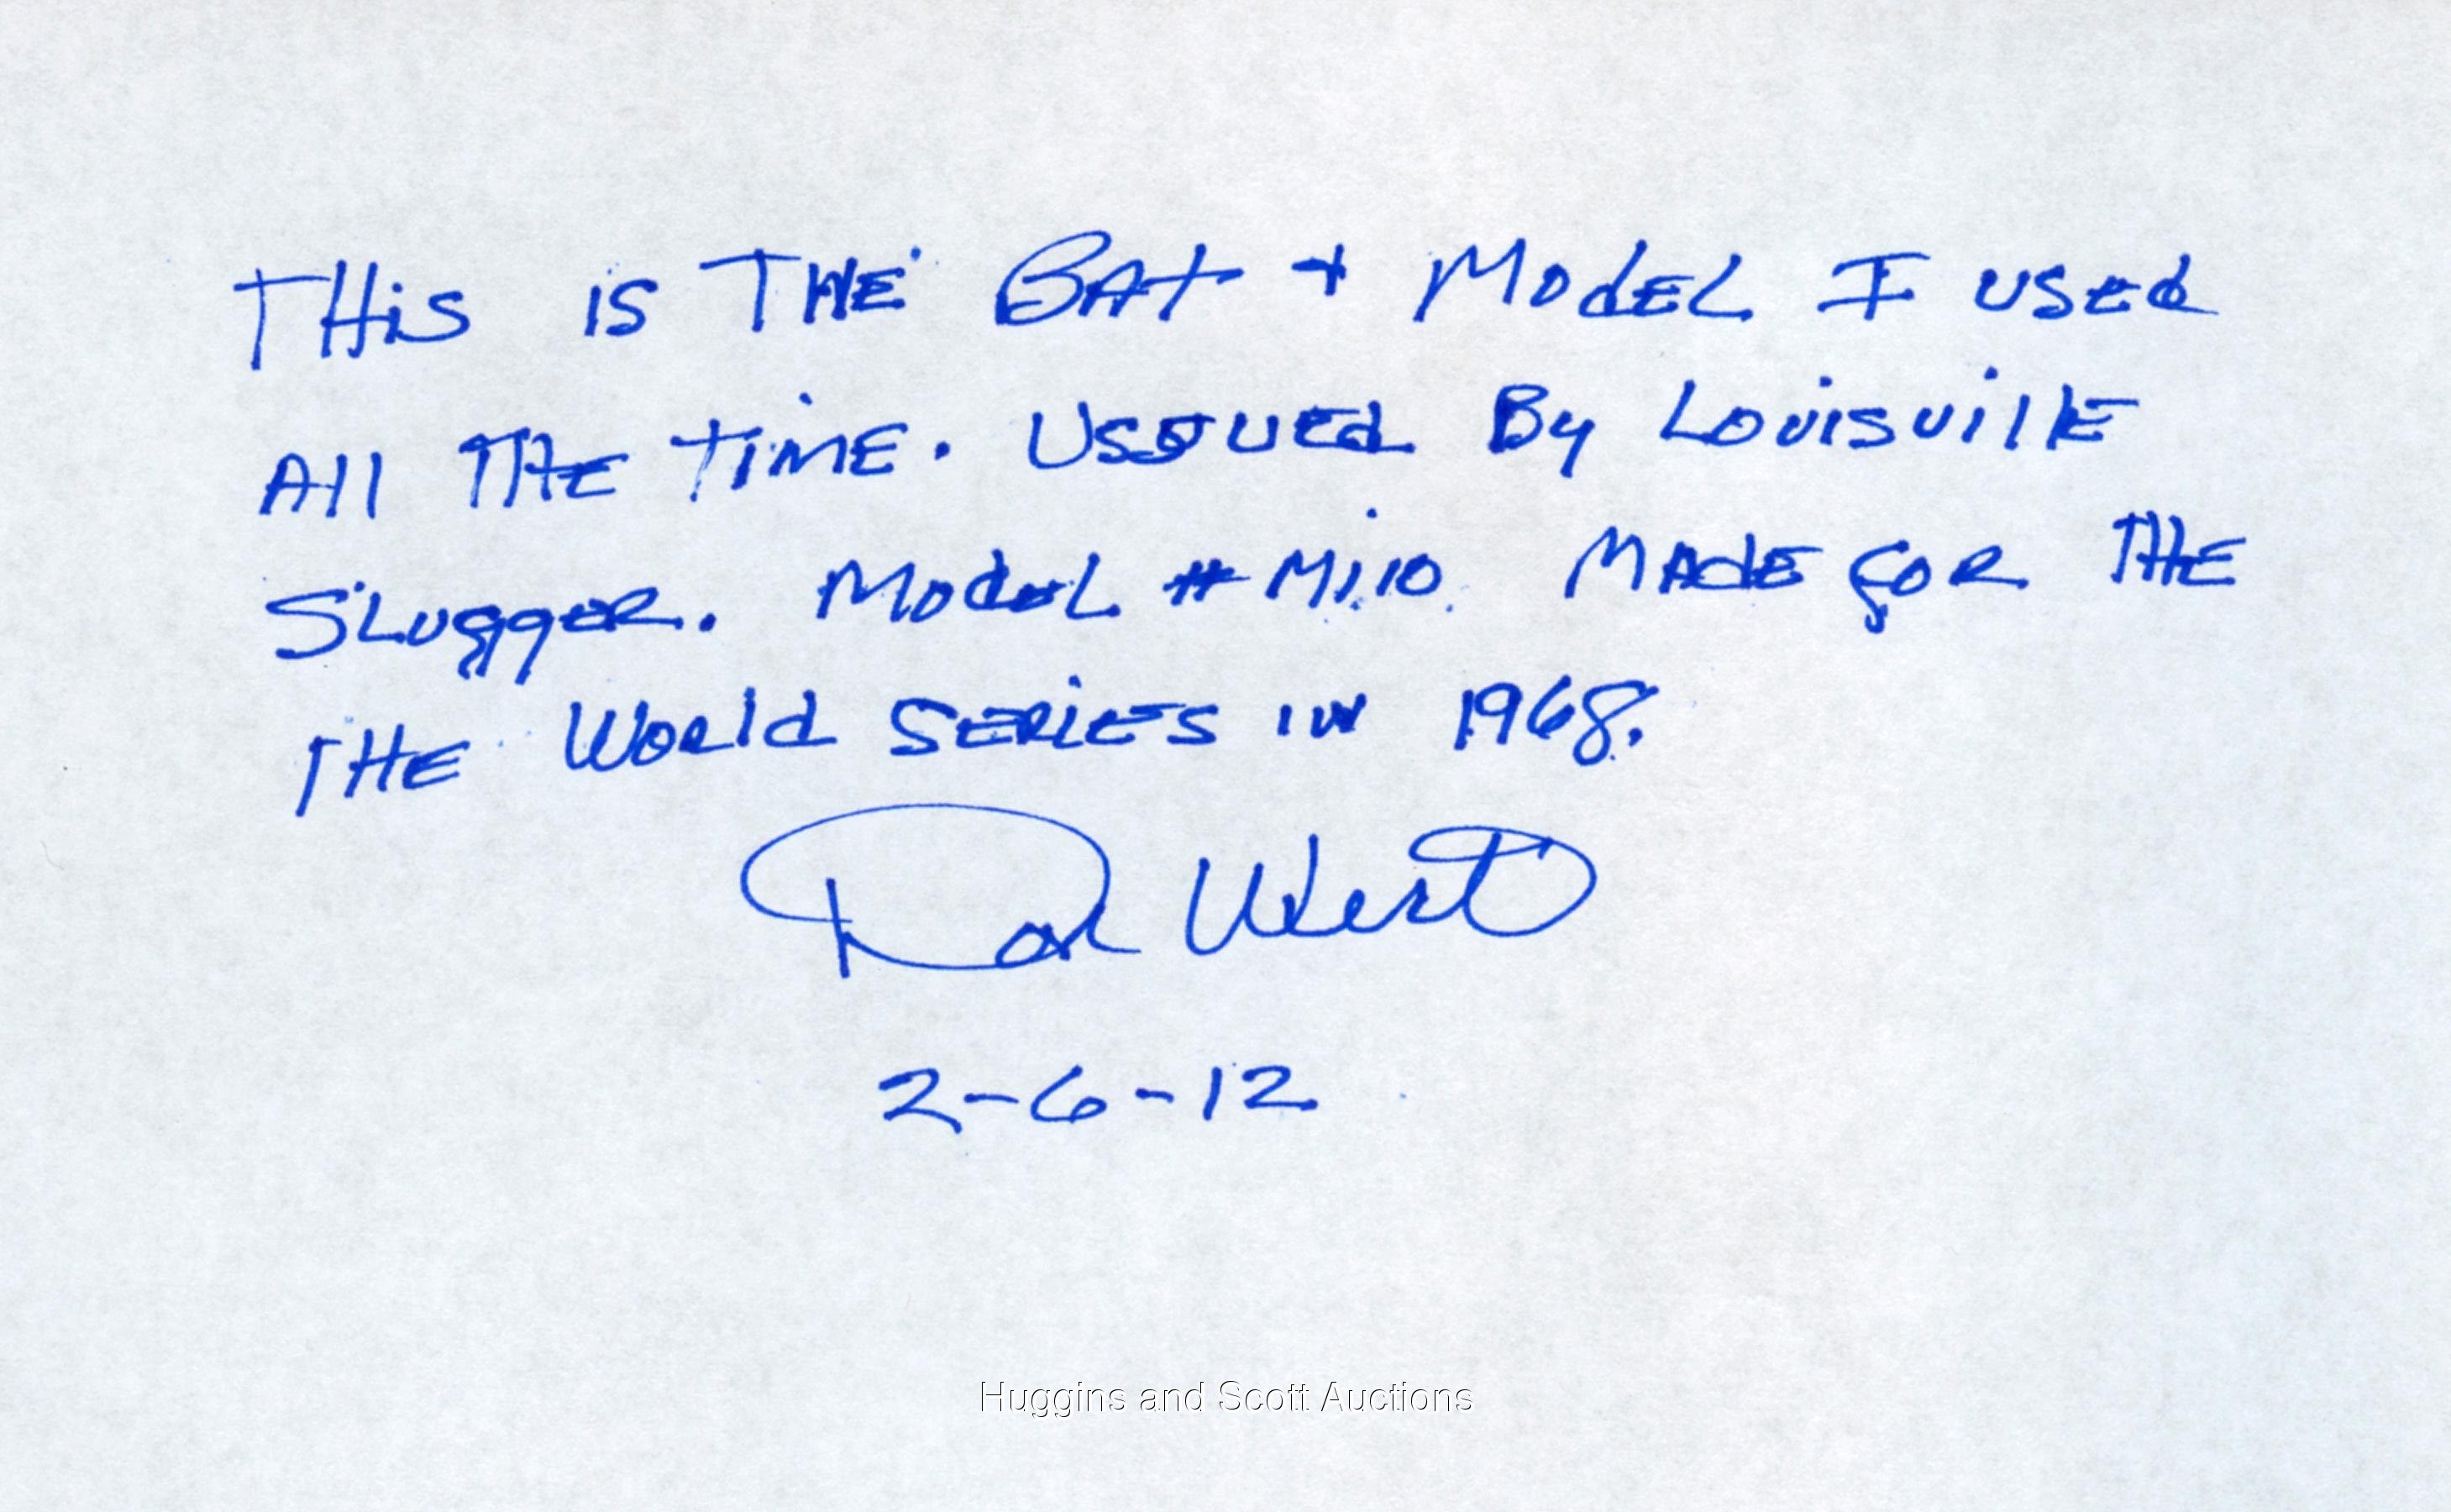 THis is THE BAt + ModEL I used
All THE TimE. Ussued By LouisvillE
SLuggeR. ModeL # M110. MAdE foR THE
THE WoRld SERiES iN 1968.
Don Wert
2-6-12
Huggins and Scott Auctions